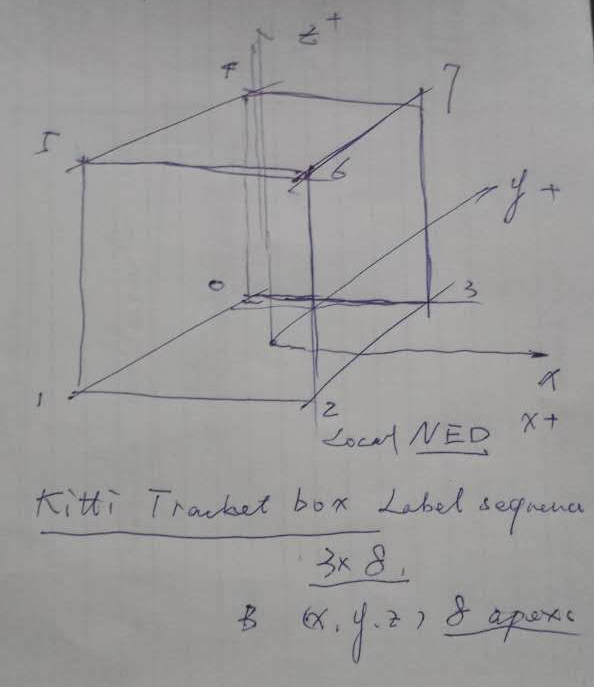 z+
4
7
5
6
y+
0
3
1
2
x
x+
Local NED
Kitti Tracket box Label sequence
3x8,
(x, y, z) 8 apexs